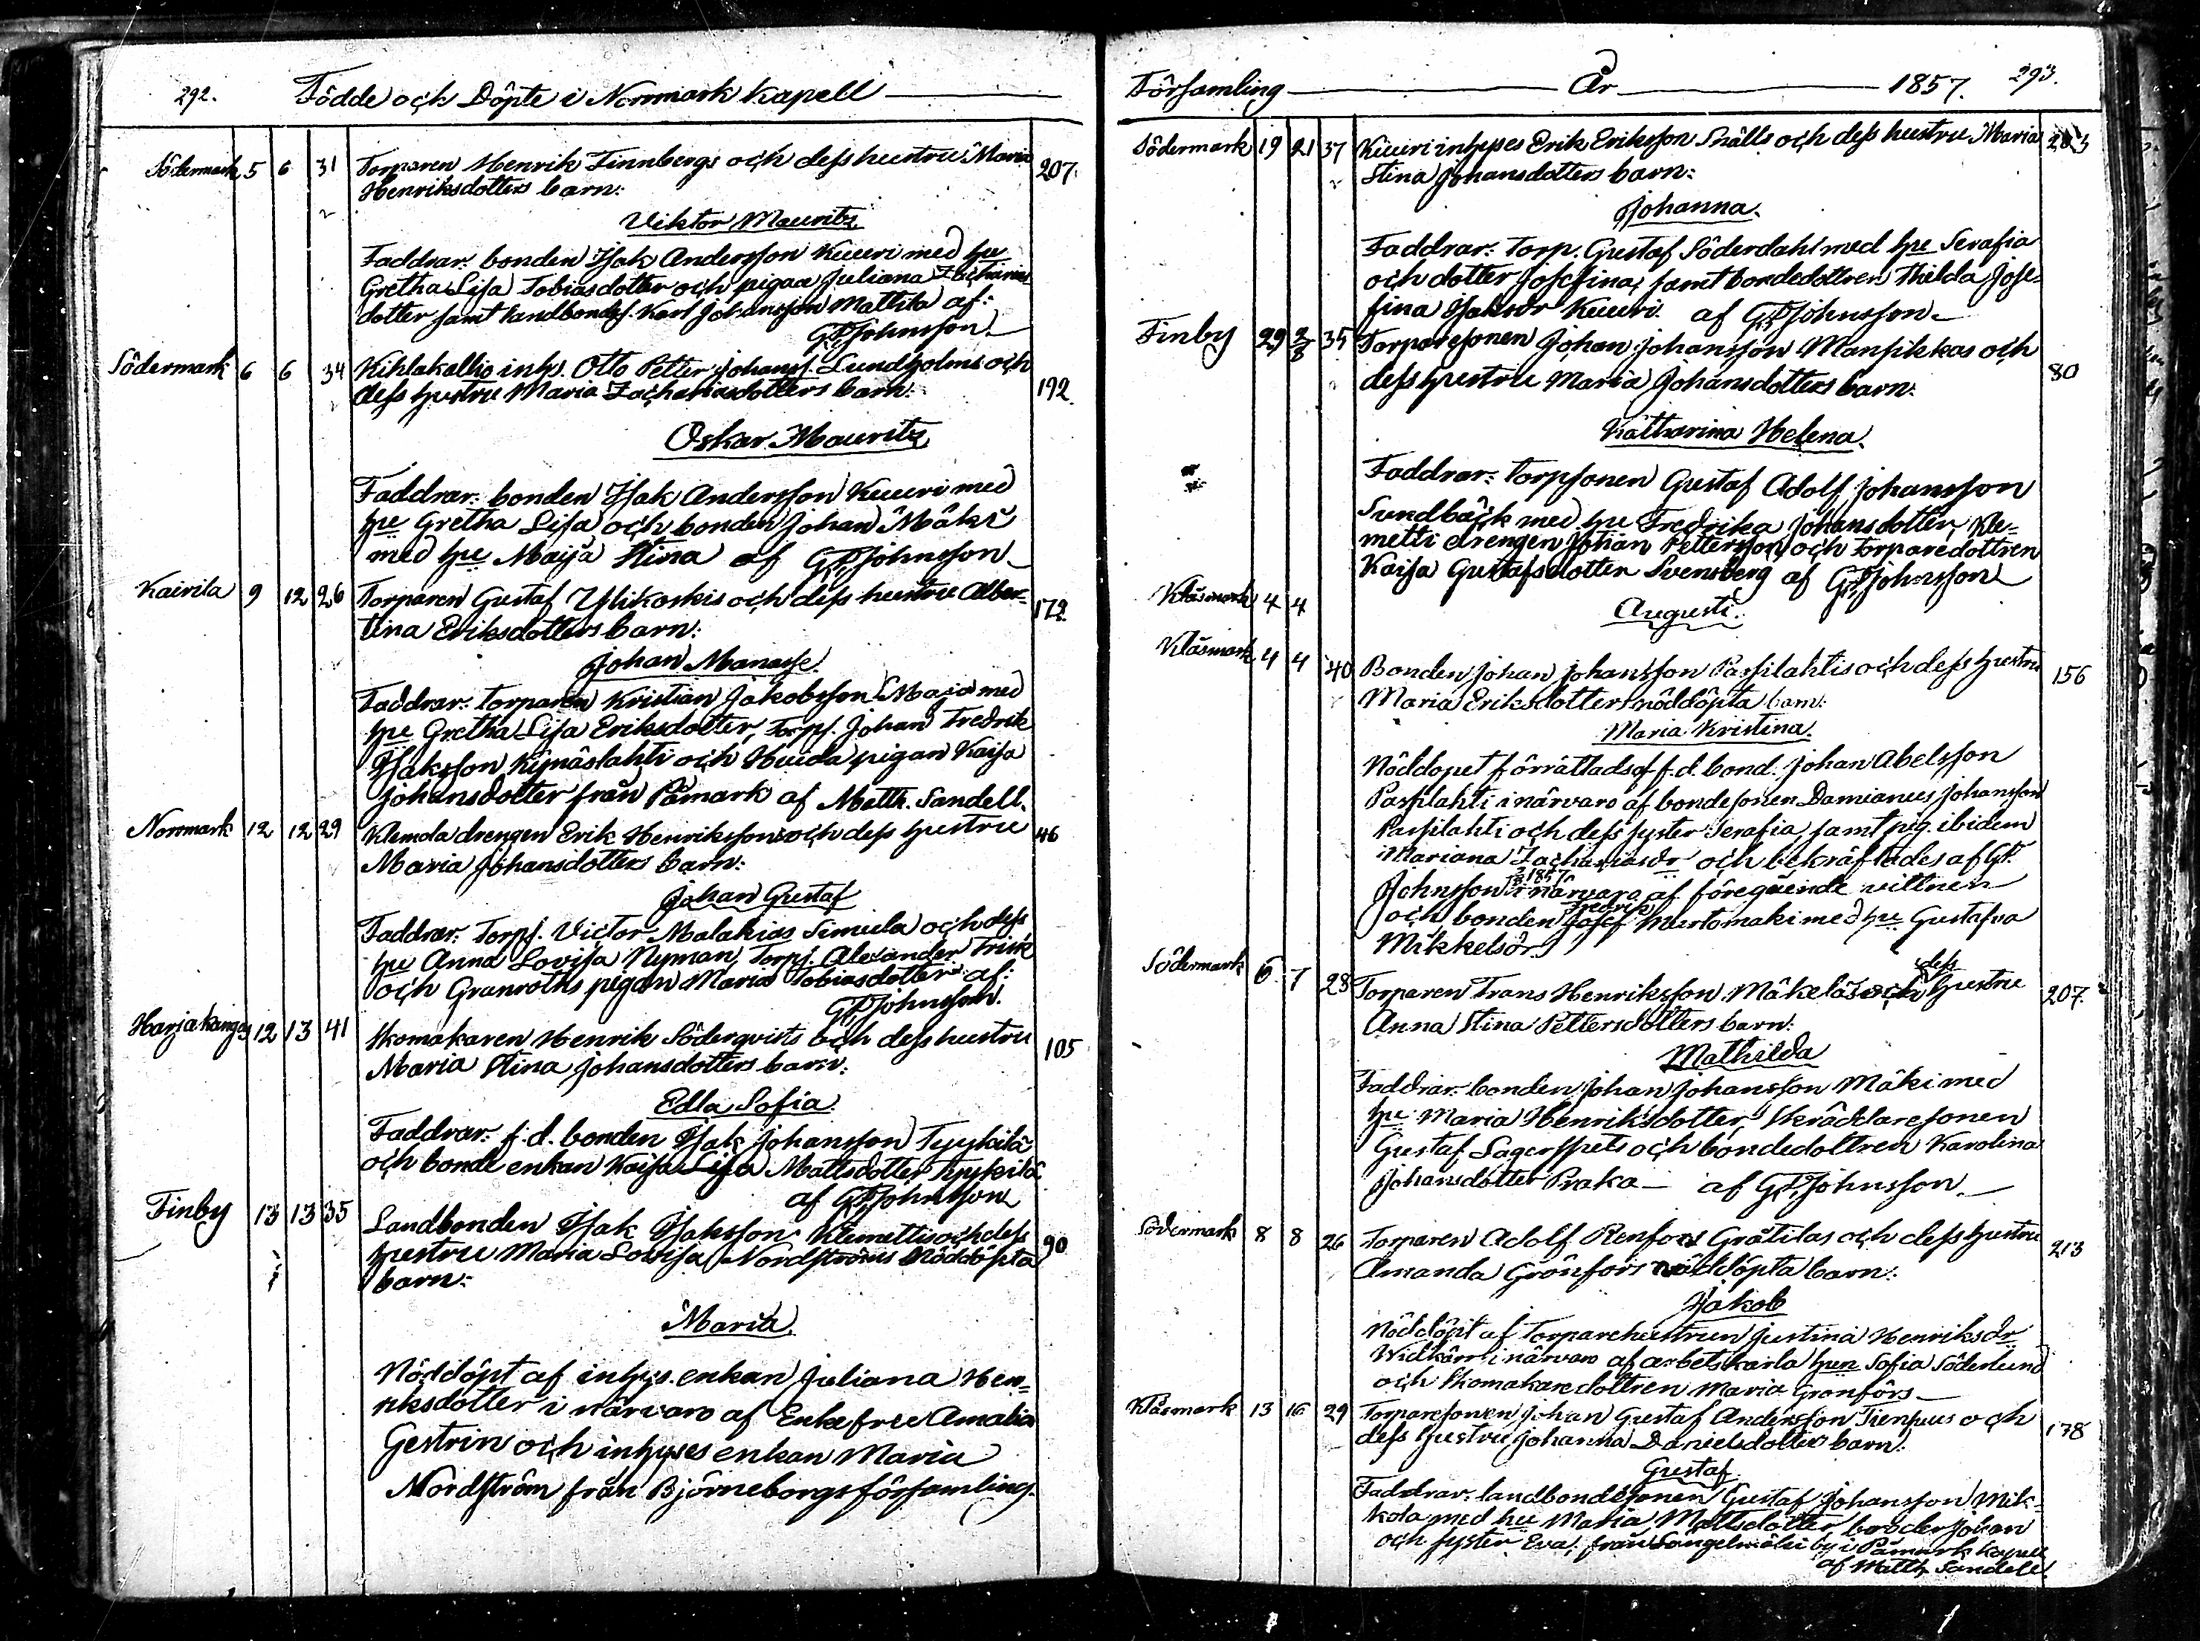 292. Födde och Döpte i Norrmark Kapell
Södermark 5 6 31 Torparen Henrik Finnbergs och dess hustru Maria 207.
Henriksdotters barn:
Viktor Mauritz
Faddrar: bonden Isak Andersson Kuuri med hu
Gretha Lisa Tobiasdotter och pigan Juliana Zacharias
dotter samt landbondes. Karl Johansson Mattila af:
G.F. Johnsson.
Södermark 6 6 34 Kihlakallio inhs. Otto Petter Johanss. Lundholms och 192.
dess hustru Maria Zachariasdotters barn:
Oskar Mauritz
Faddrar: bonden Isak Andersson Kuuri med
hu Gretha Lisa och bonden Johan Mäki
med hu Maija Stina af G.F. Johnsson
Kairila 9 12 26 Torparen Gustaf Ylikoskis och dess hustru Alber- 172.
tina Eriksdotters barn:
Johan Manasse.
Faddrar: torparen Kristian Jakobsson Maja med
hu Gretha Lisa Eriksdotter, Torps. Johan Fredrik
Isaksson Kynäslahti och Huida pigan Kaisa
Johansdotter från Påmark af Matth. Sandell.
Norrmark 12 12 29 Klemola drengen Erik Henrikssons och dess hustru 46
Maria Johansdotters barn:
Johan Gustaf
Faddrar: Torps. Victor Malakias Simula och dess
hu Anna Lovisa Nyman, Torps. Alexander Frisk
och Granroths pigan Maria Tobiasdotter af:
G.F. Johnsson.
Harjakangas 12 13 41 Skomakaren Henrik Söderqvists och dess hustru 105
Maria Stina Johansdotters barn:
Edla Sofia.
Faddrar: f.d. bonden Isak Johansson Tyykilä
och bonde enkan Kaisa Lisa Mattsdotter Tyykilä
af G.F. Johnsson
Finby 13 13 35 Landbonden Isak Isaksson Klemettis och dess 90
hustru Maria Lovisa Nordströms Nöddöpta
barn:
Maria.
Nöddöpt af inhys. enkan Juliana Hen-
riksdotter i närvaro af Enkefru Amalia
Gestrin och inhyses enkan Maria
Nordström från Björneborgs församling.
Församling År 1857. 293.
Södermark 19 21 37 Kuuri inhyses Erik Eriksson Snälls och dess hustru Maria 203
Stina Johansdotters barn:
Johanna.
Faddrar: Torp. Gustaf Söderdahl med hu Serafia
och dotter Josefina, samt bondedottren Thilda Jose-
fina Isaksdr Kuuri. af G.F. Johnsson.
Finby 29 2/8 35 Torparesonen Johan Johansson Mansikkas och 80
dess hustru Maria Johansdotters barn:
Katharina Helena.
Faddrar: Torpsonen Gustaf Adolf Johansson
Sundbäck med hu Fredrika Johansdotter, Kle-
metti drengen Johan Pettersson och Torparedottren
Kaisa Gustafsdotter Svensberg af G.F. Johnsson
Klåsmark 4 4 Augusti.
Klåsmark 4 4 40 Bonden Johan Johansson Passilahtis och dess hustru 156
Maria Eriksdotters nöddöpta barn:
Maria Kristina.
Nöddopet förrättads af f.d. bond. Johan Abelsson
Passilahti i närvaro af bondesonen Damianus Johansson
Passilahti och dess syster Serafia, samt pig. ibidem
Mariana Zachariasdr och bekräftades af G.F.
Johnsson i närvaro af föregående vittnen
och bonden Josef Fredrik Murtomäki med hu Gustafva
Mikkelsdr.
Södermark 6 7 28 Torparen Frans Henriksson Mäkeläs och dess hustru 207.
Anna Stina Pettersdotters barn:
Mathilda
Faddrar: bonden Johan Johansson Mäki med
hu Maria Henriksdotter, Skräddaresonen
Gustaf Lagerspets och bondedottren Karolina
Johansdotter Praka af G.F. Johnsson.
Södermark 8 8 26 Torparen Adolf Renfors Grätilas och dess hustru 213
Amanda Grönfors nöddöpta barn:
Jakob
Nöddöpt af Torparehustrun Justina Henriksdr
Widkärr i närvaro af arbetskarls hun Sofia Söderlund
och Skomakaredottren Maria Grönfors
Klåsmark 13 16 29 Torparesonen Johan Gustaf Andersson Tienpuus och 178
dess hustru Johanna Danielsdotters barn:
Gustaf
Faddrar: landbondesonen Gustaf Johansson Mik-
kola med hu Maria Mattsdotter, broder Johan
och syster Eva, från Längelmäki by i Påmark Kapell
af Matth. Sandell.